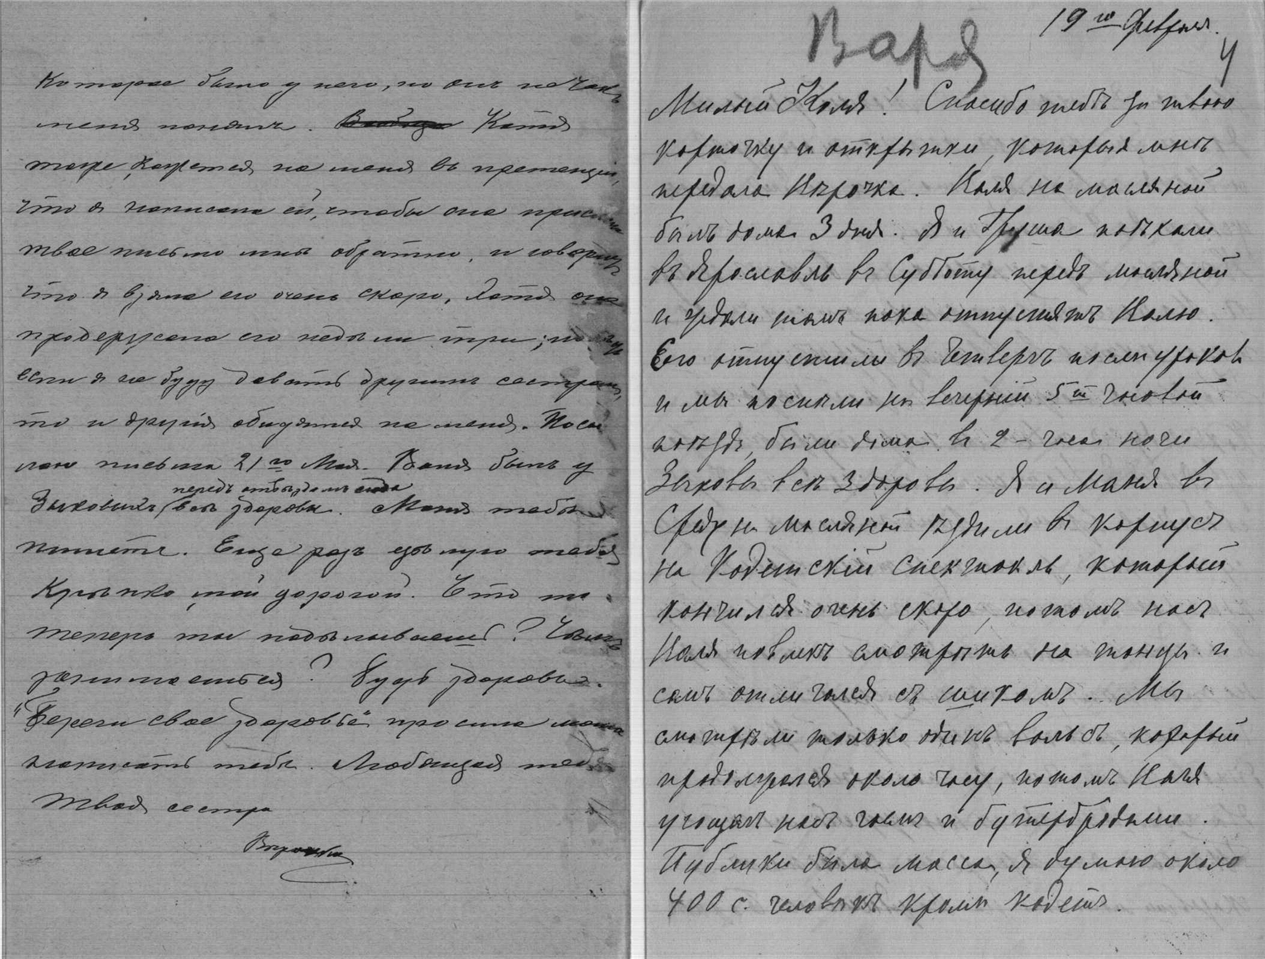 которое было у него, но онъ не такъ
меня понялъ. Вообще Катя
тоже, кажется на меня въ претензіи,
что я написала ей, чтобы она прислала
твое письмо мнѣ обратно, и говоритъ
что я взяла его очень скоро, хотя она
продержала его недѣли три; но вѣдь
если я не буду давать другимъ сестрамъ,
то и другія обидятся на меня. Посы
лаю письма 21го Мая. Ваня былъ у
передъ отъѣздомъ сюда
Зыковыхъ, всѣ здоровы. Маня тебѣ
пишетъ. Еще разъ цѣлую тебя
крѣпко, мой дорогой. Что то
теперь ты подѣлываешь? Чѣмъ
занимаешься? Будь здоровъ.
"Береги свое здоровье" просила мама
написать тебѣ. Любящая тебя
твоя сестра
Варя
19го Февраля.
Варя
4
Милый Коля! Спасибо тебѣ за твою
карточку и открытки, которыя мнѣ
передала Вѣрочка. Коля на масляной
былъ дома 3 дня. Я и Груша поѣхали
въ Ярославль въ Субботу передъ масляной
и ждали тамъ пока отпустятъ Колю.
Его отпустили въ Четвергъ послѣ уроковъ
и мы поспѣли на вечерній 5ти часовой
поѣздъ, были дома въ 2 - часа ночи
Зыковы всѣ здоровы. Я и Маня въ
Среду на масляной ѣздили въ корпусъ
на Кадетскій спектакль, который
кончился очень скоро, потомъ насъ
Коля повелъ смотрѣть на танцы и
самъ отличался съ шикомъ. Мы
смотрѣли только одинъ вальсъ, который
продолжался около часу, потомъ Коля
угощалъ насъ чаемъ и бутербродами.
Публики была масса, я думаю около
400 с. человѣкъ кромѣ кадетъ.